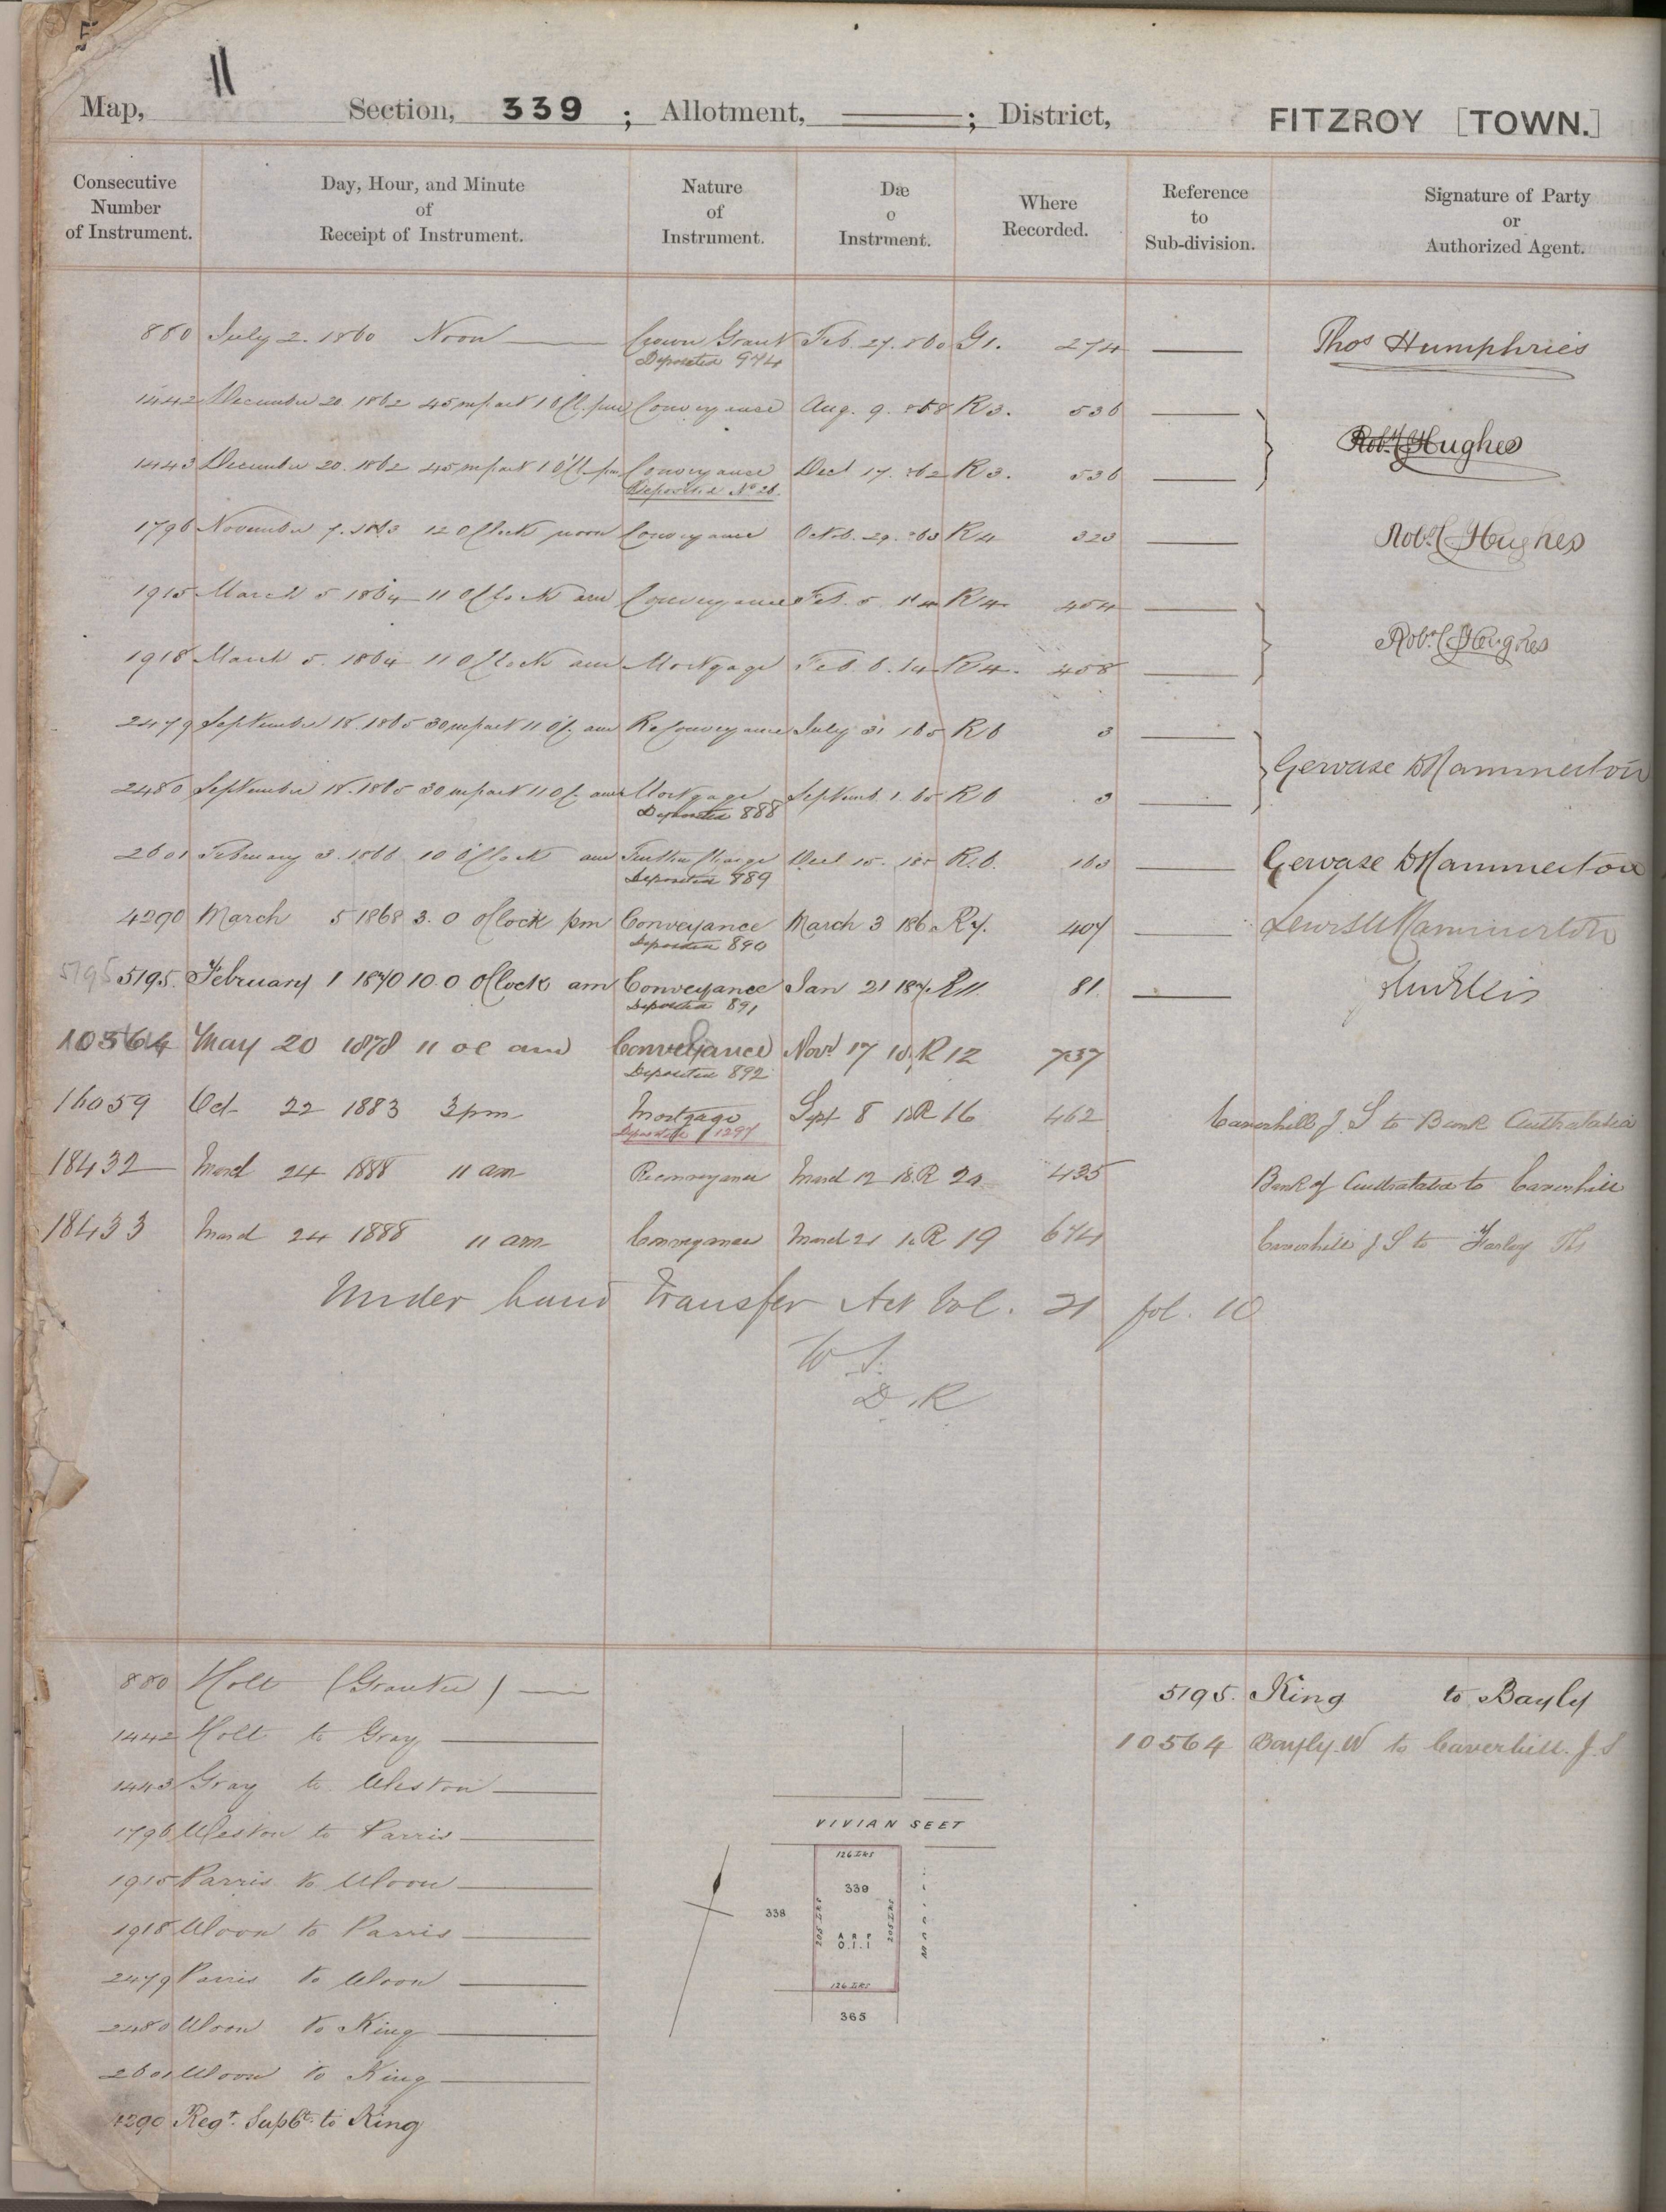 11
Map, Section, 339 ; Allotment, ——— ; District, FITZROY [TOWN.]
Consecutive Number of Instrument.
Day, Hour, and Minute of Receipt of Instrument.
Nature of Instrument.
Dæ o Instrment.
Where Recorded.
Reference to Sub-division.
Signature of Party or Authorized Agent.
880 July 2. 1860 Noon —— Crown Grant Feb. 27. 860 G1. 274 —— Thos Humphries
Deposited 974
1442 December 20. 1862 45 m past 1 O'Cl. pm Conveyance Aug. 9. 858 R3. 536 ——
Robt Hughes
1443 December 20. 1862 45 m past 1 O'Cl. pm Conveyance Decr 17. 862 R3. 536 ——
Deposited No 26.
1796 November 7. 1863 12 O'Clock noon Conveyance Octob. 29. 863 R4 323 —— Robt Hughes
1915 March 5 1864 11 O'Clock am Conveyance Feb. 5 R4 454 ——
Robt Hughes
1918 March 5. 1864 11 O'Clock am Mortgage Feb. 6. R4. 458 ——
2479 September 18. 1865 30 m past 11 O'C. am Reconveyance July 31 165 R6 3 ——
Gervase D Hammerton
2480 September 18. 1865 30 m past 11 O'C. am Mortgage Septemb. 1. 65 R6 3 ——
Deposited 888
2601 February 3. 1866 10 O'Clock am Further Charge Decr 15. 185 R.6. 163 —— Gervase D Hammerton
Deposited 889
4290 March 5 1868 3. 0 O'Clock pm Conveyance March 3 186 R7. 407 —— Lewis Hammerton
Deposited 890
5195 5195. February 1 1870 10. 0 O'Clock am Conveyance Jan 21 187 R11. 81. ——
Deposited 891
10564 May 20 1878 11 oc am Conveyance Novr 17 18 R 12 737
Deposited 892
16059 Oct 22 1883 3 pm Mortgage Sept 8 18 R 16 462 Caverhill J. S to Bank Australasia
Deposited 1297
18432 March 24 1888 11 am Reconveyance March 12 18 R 20 435 Bank of Australasia to Caverhill
18433 March 24 1888 11 am Conveyance March 21 R 19 674 Caverhill J S to Farley Ths
Under Land Transfer Act Vol. 21 fol. 10
W S.
D. R
880 Holt (Grantee) ——
1442 Holt to Gray ——
1443 Gray to Weston ——
1796 Weston to Parris ——
1915 Parris to Woon ——
1918 Woon to Parris ——
2479 Parris to Woon ——
2480 Woon to King ——
2601 Woon to King ——
4290 Regr. Supct. to King
VIVIAN SEET
126 LKS
339
338
205 LKS
205 LKS
A R P
0.1.1
126 LKS
365
5195. King to Bayly
10564 Bayly. W to Caverhill. J. S